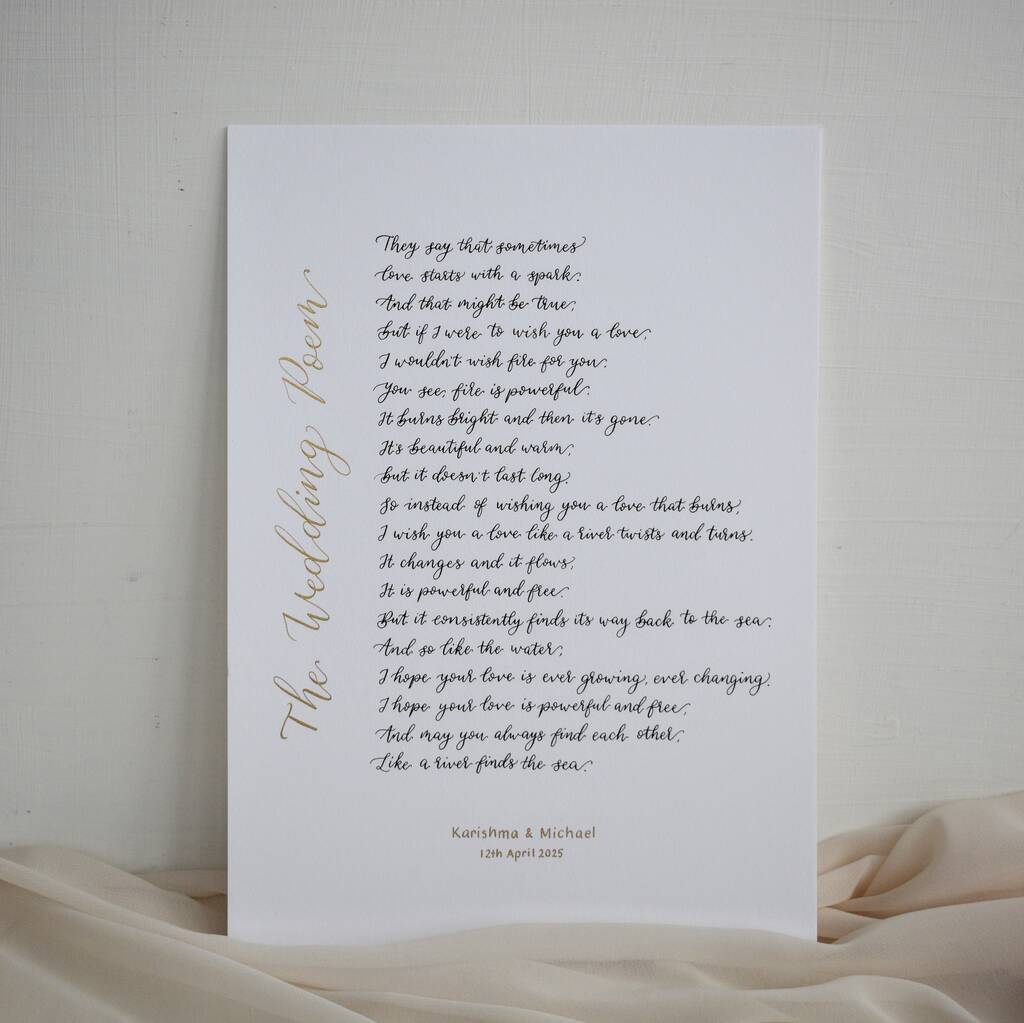 The Wedding Poem
They say that sometimes
love starts with a spark.
And that might be true,
But if I were to wish you a love,
I wouldn't wish fire for you.
You see, fire is powerful.
It burns bright and then it's gone.
It's beautiful and warm,
but it doesn't last long.
So instead of wishing you a love that burns,
I wish you a love like a river twists and turns.
It changes and it flows,
It is powerful and free.
But it consistently finds its way back to the sea.
And so like the water,
I hope your love is ever growing, ever changing.
I hope your love is powerful and free,
And may you always find each other,
Like a river finds the sea.
Karishma & Michael
12th April 2025